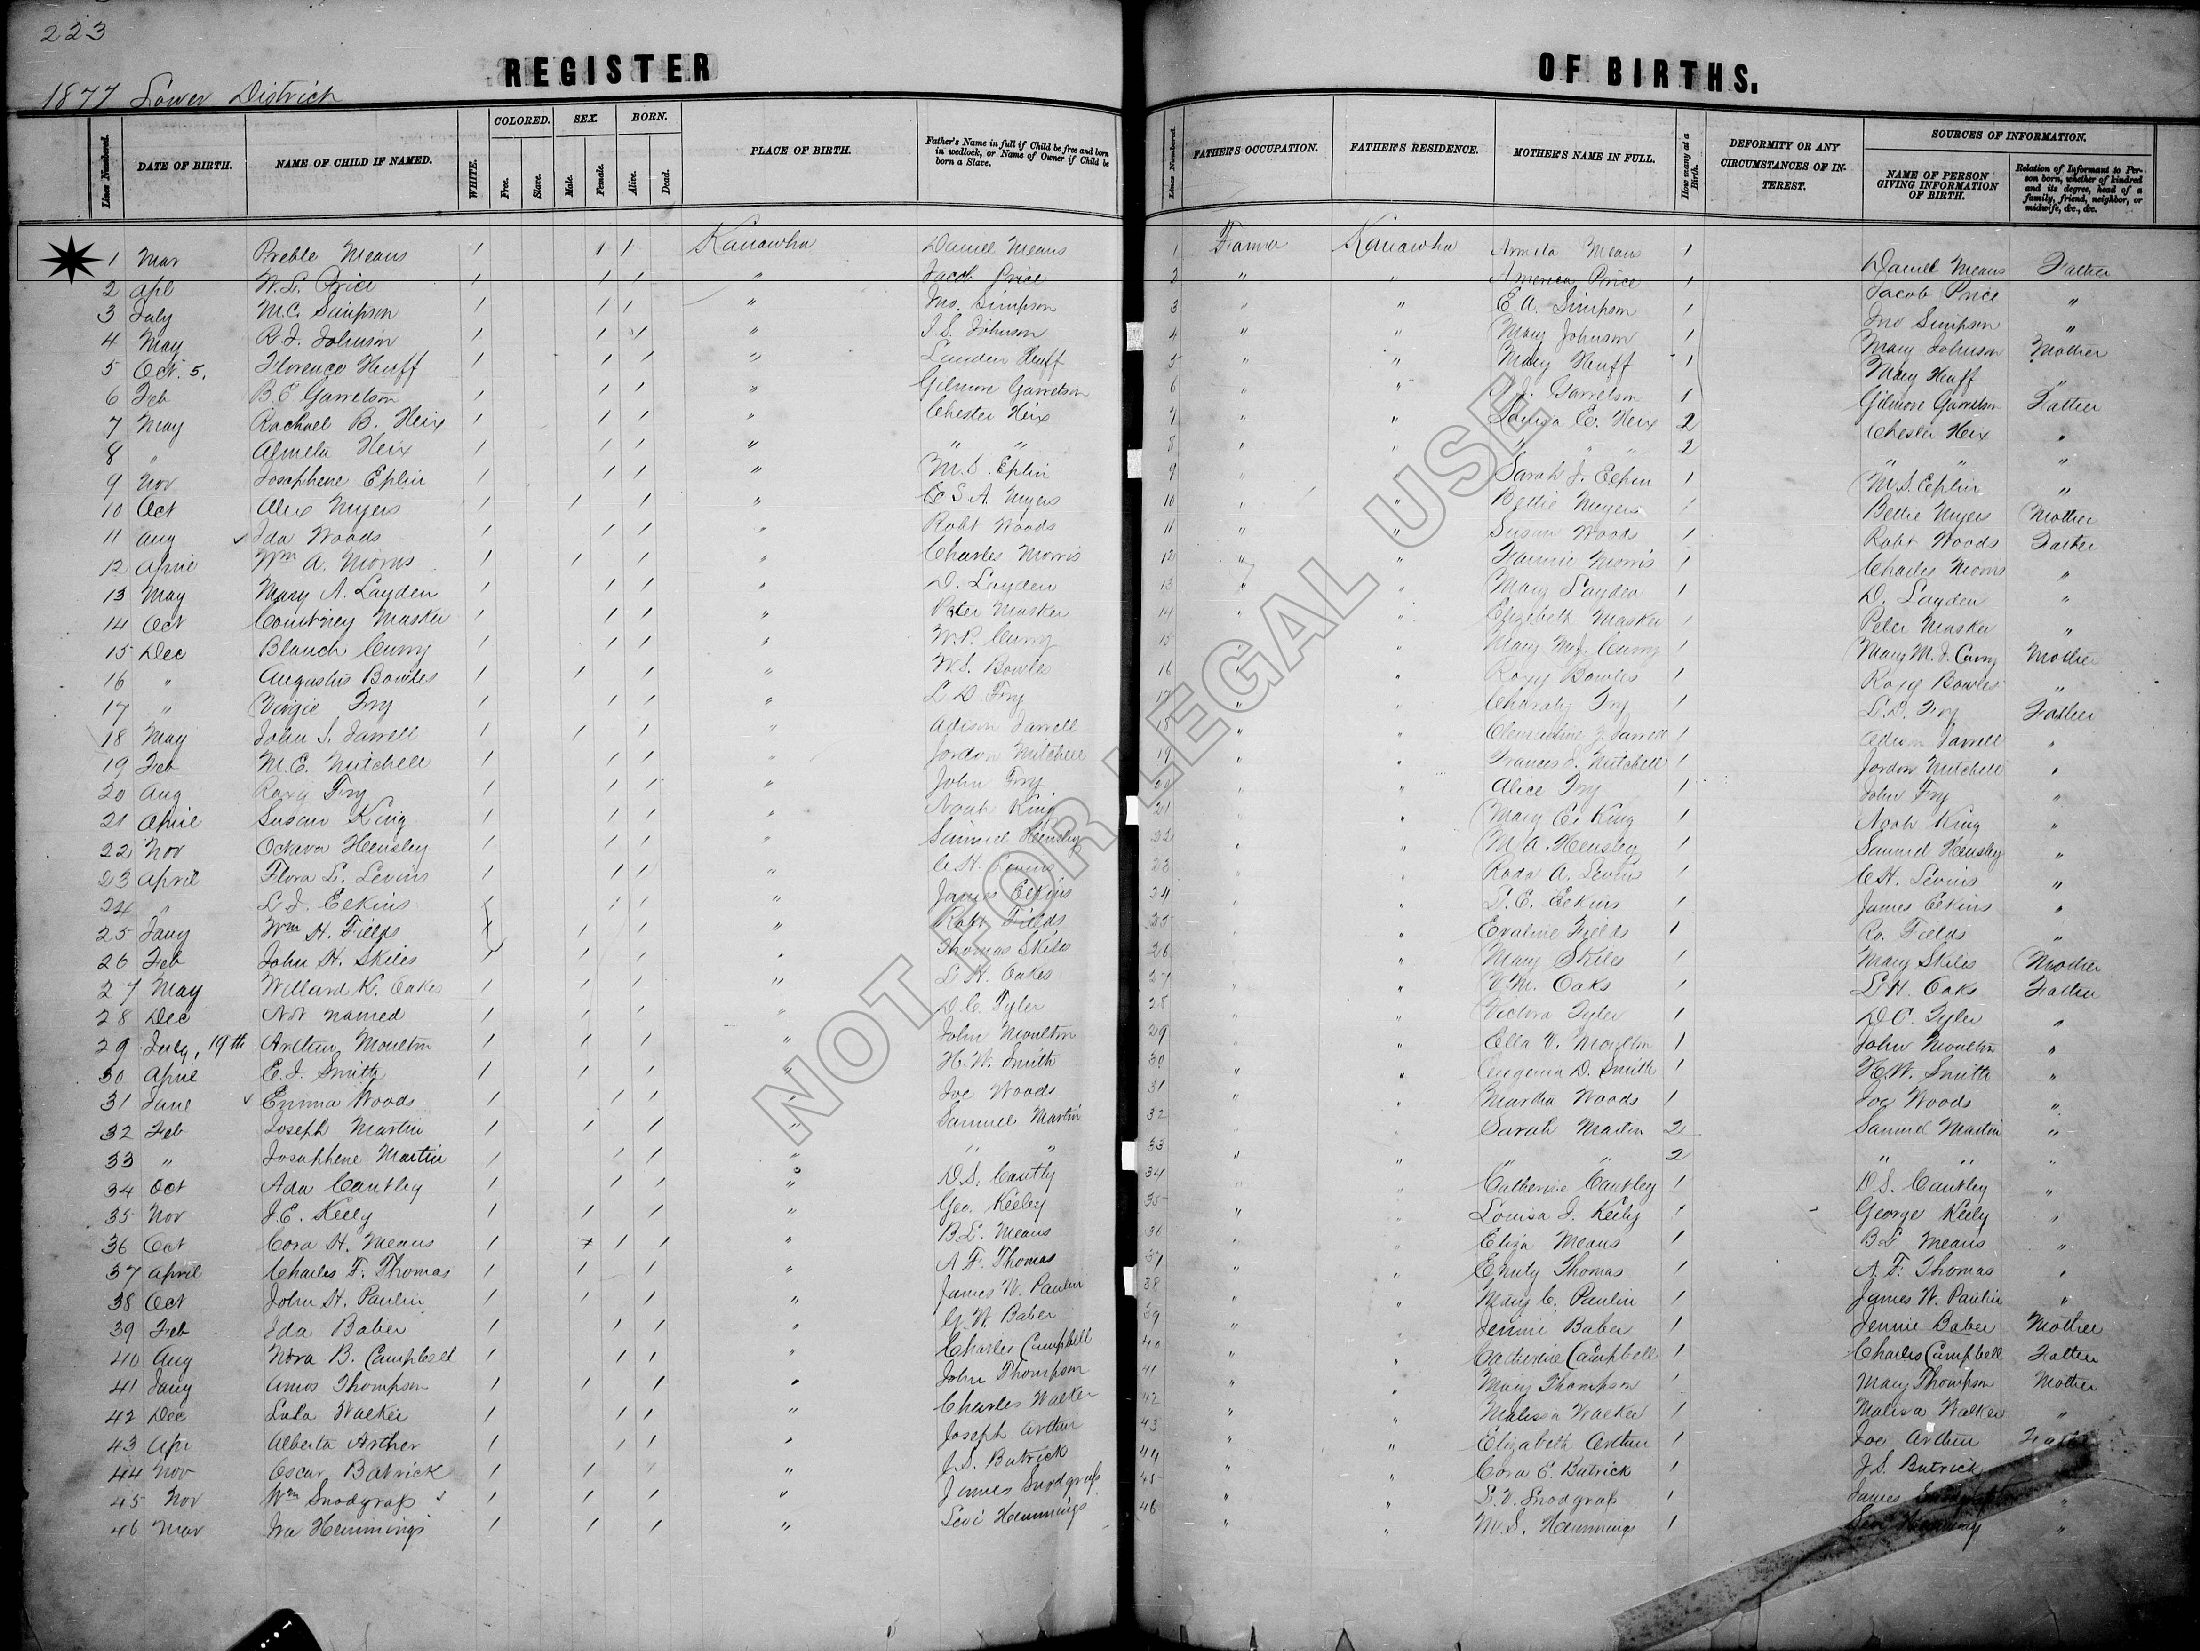 223
REGISTER OF BIRTHS.
1877 Lower District
Lines Numbered. DATE OF BIRTH. NAME OF CHILD IF NAMED. WHITE. COLORED. Free. Slave. SEX. Male. Female. BORN. Alive. Dead. PLACE OF BIRTH. Father's Name in full if Child be free and born in wedlock, or Name of Owner if Child be born a Slave.
Lines Numbered. FATHER'S OCCUPATION. FATHER'S RESIDENCE. MOTHER'S NAME IN FULL. How many at a Birth. DEFORMITY OR ANY CIRCUMSTANCES OF INTEREST. SOURCES OF INFORMATION. NAME OF PERSON GIVING INFORMATION OF BIRTH. Relation of Informant to Person born, whether of kindred and its degree, head of a family, friend, neighbor, or midwife, &c., &c.
1 Mar Preble Means 1 1 1 Kanawha Daniel Means 1 Farmer Kanawha Means 1 Daniel Means Father
2 Apl W.L. Price 1 1 1 " Jacob Price 2 " " America Price 1 Jacob Price "
3 July M.C. Simpson 1 1 1 " Jno. Simpson 3 " " E A. Simpson 1 Jno Simpson "
4 May R.J. Johnson 1 1 1 " J.S. Johnson 4 " " Mary Johnson 1 Mary Johnson Mother
5 Oct. 5, Florence Huff 1 1 1 " Landen Huff 5 " " Mary Huff 1 Mary Huff "
6 Feb B.E Garretson 1 1 1 " Gilmore Garretson 6 " " J. Garretson 1 Gilmore Garretson Father
7 May Rachael B. Heix 1 1 1 " Chester Heix 7 " " Louisa E. Heix 2 Chester Heix "
8 " Almeta Heix 1 1 1 " " " 8 " " " " 2 " " "
9 Nov Josephene Eplin 1 1 1 " M.S. Eplin 9 " " Sarah J. Eplin 1 M.S. Eplin "
10 Oct Alex Myers 1 1 1 " C S A. Myers 10 " " Bettie Myers 1 Bettie Myers Mother
11 Aug Ida Woods 1 1 1 " Robt Woods 11 " " Susan Woods 1 Robt Woods Father
12 April Wm A. Morris 1 1 1 " Charles Morris 12 " " Fannie Morris 1 Charles Morris "
13 May Mary A. Layden 1 1 1 " D. Layden 13 " " Mary Layden 1 D. Layden "
14 Oct Courtney Masker 1 1 1 " Peter Masker 14 " " Elizebeth Masker 1 Peter Masker "
15 Dec Blanch Curry 1 1 1 " W.P. Curry 15 " " Mary M.J. Curry 1 Mary M.J. Curry Mother
16 " Augustus Bowles 1 1 1 " W.S. Bowles 16 " " Roxy Bowles 1 Roxy Bowles "
17 " Virgie Fry 1 1 1 " L D. Fry 17 " " Charaty Fry 1 L.D. Fry Father
18 May John S. Jarrell 1 1 1 " Adison Jarrell 18 " " Clementine J. Jarrell 1 Adison Jarrell "
19 Feb M.E. Mitchell 1 1 1 " Jordon Mitchell 19 " " Frances J. Mitchell 1 Jordon Mitchell "
20 Aug Roxy Fry 1 1 1 " John Fry 20 " " Alice Fry 1 John Fry "
21 April Susan King 1 1 1 " Noah King 21 " " Mary E. King 1 Noah King "
22 Nov Octavia Hensley 1 1 1 " Samuel Hensley 22 " " M.A. Hensley 1 Samuel Hensley "
23 April Flora L. Levins 1 1 1 " C.H. Levins 23 " " Rada A. Levins 1 C.H. Levins "
24 " L.J. Elkins 1 1 1 " James Elkins 24 " " L.E. Elkins 1 James Elkins "
25 Jany Wm H. Fields 1 1 1 " Robt Fields 25 " " Evaline Fields 1 Ro. Fields "
26 Feb John H. Skiles 1 1 1 " Thomas Skiles 26 " " Mary Skiles 1 Mary Skiles Mother
27 May Willard K. Oakes 1 1 1 " L H. Oakes 27 " " V.M. Oaks 1 L.H. Oaks Father
28 Dec Not named 1 1 1 " D.C. Tyler 28 " " Victora Tyler 1 D.C. Tyler "
29 July, 19th Arthur Moulton 1 1 1 " John Moulton 29 " " Ella V. Moulton 1 John Moulton "
30 April E.J. Smith 1 1 1 " H.W. Smith 30 " " Eugenia D. Smith 1 H.W. Smith "
31 June Emma Woods 1 1 1 " Joe Woods 31 " " Martha Woods 1 Joe Woods "
32 Feb Joseph Martin 1 1 1 " Samuel Martin 32 " " Sarah Martin 2 Samuel Martin "
33 " Josephene Martin 1 1 1 " " " 33 " " " " 2 " " "
34 Oct Ada Cantley 1 1 1 " D.S. Cantly 34 " " Catherine Cantley 1 D S. Cantley "
35 Nov J.E. Keely 1 1 1 " Geo. Keeley 35 " " Louisa J. Keely 1 George Keely "
36 Oct Cora H. Means 1 1 1 " B.L. Means 36 " " Eliza Means 1 B L Means "
37 April Charles F. Thomas 1 1 1 " A F. Thomas 37 " " Emily Thomas 1 A F. Thomas "
38 Oct John H. Paulin 1 1 1 " James W. Paulin 38 " " Mary C. Paulin 1 James W. Paulin "
39 Feb Ida Baber 1 1 1 " G.W Baber 39 " " Jennie Baber 1 Jennie Baber Mother
40 Aug Nora B. Campbell 1 1 1 " Charles Campbell 40 " " Catherine Campbell 1 Charles Campbell Father
41 Jany Amos Thompson 1 1 1 " John Thompson 41 " " Mary Thompson 1 Mary Thompson Mother
42 Dec Lula Walker 1 1 1 " Charles Walker 42 " " Malissa Walker 1 Malissa Walker "
43 Apr Alberta Arther 1 1 1 " Joseph Arthur 43 " " Elizabeth Arthur 1 Joe Arthur Father
44 Nov Oscar Batrick 1 1 1 " J.S. Batrick 44 " " Cora E. Batrick 1 J.S. Butrick
45 Nov Wm Snodgrass 1 1 1 " James Snodgrass 45 " " L.V. Snodgrass 1 James Snodgrass "
46 Mar Ira Hemmings 1 1 1 " Levi Hemmings 46 " " M.S. Hemmings 1 Levi Hemmings "
NOT FOR LEGAL USE